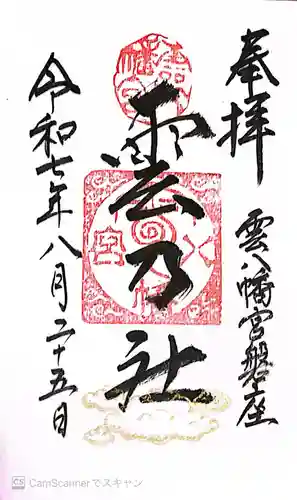 奉拝
雲八幡宮磐座
雲乃社
八幡
宮
令和七年八月二十五日
CS CamScannerでスキャン